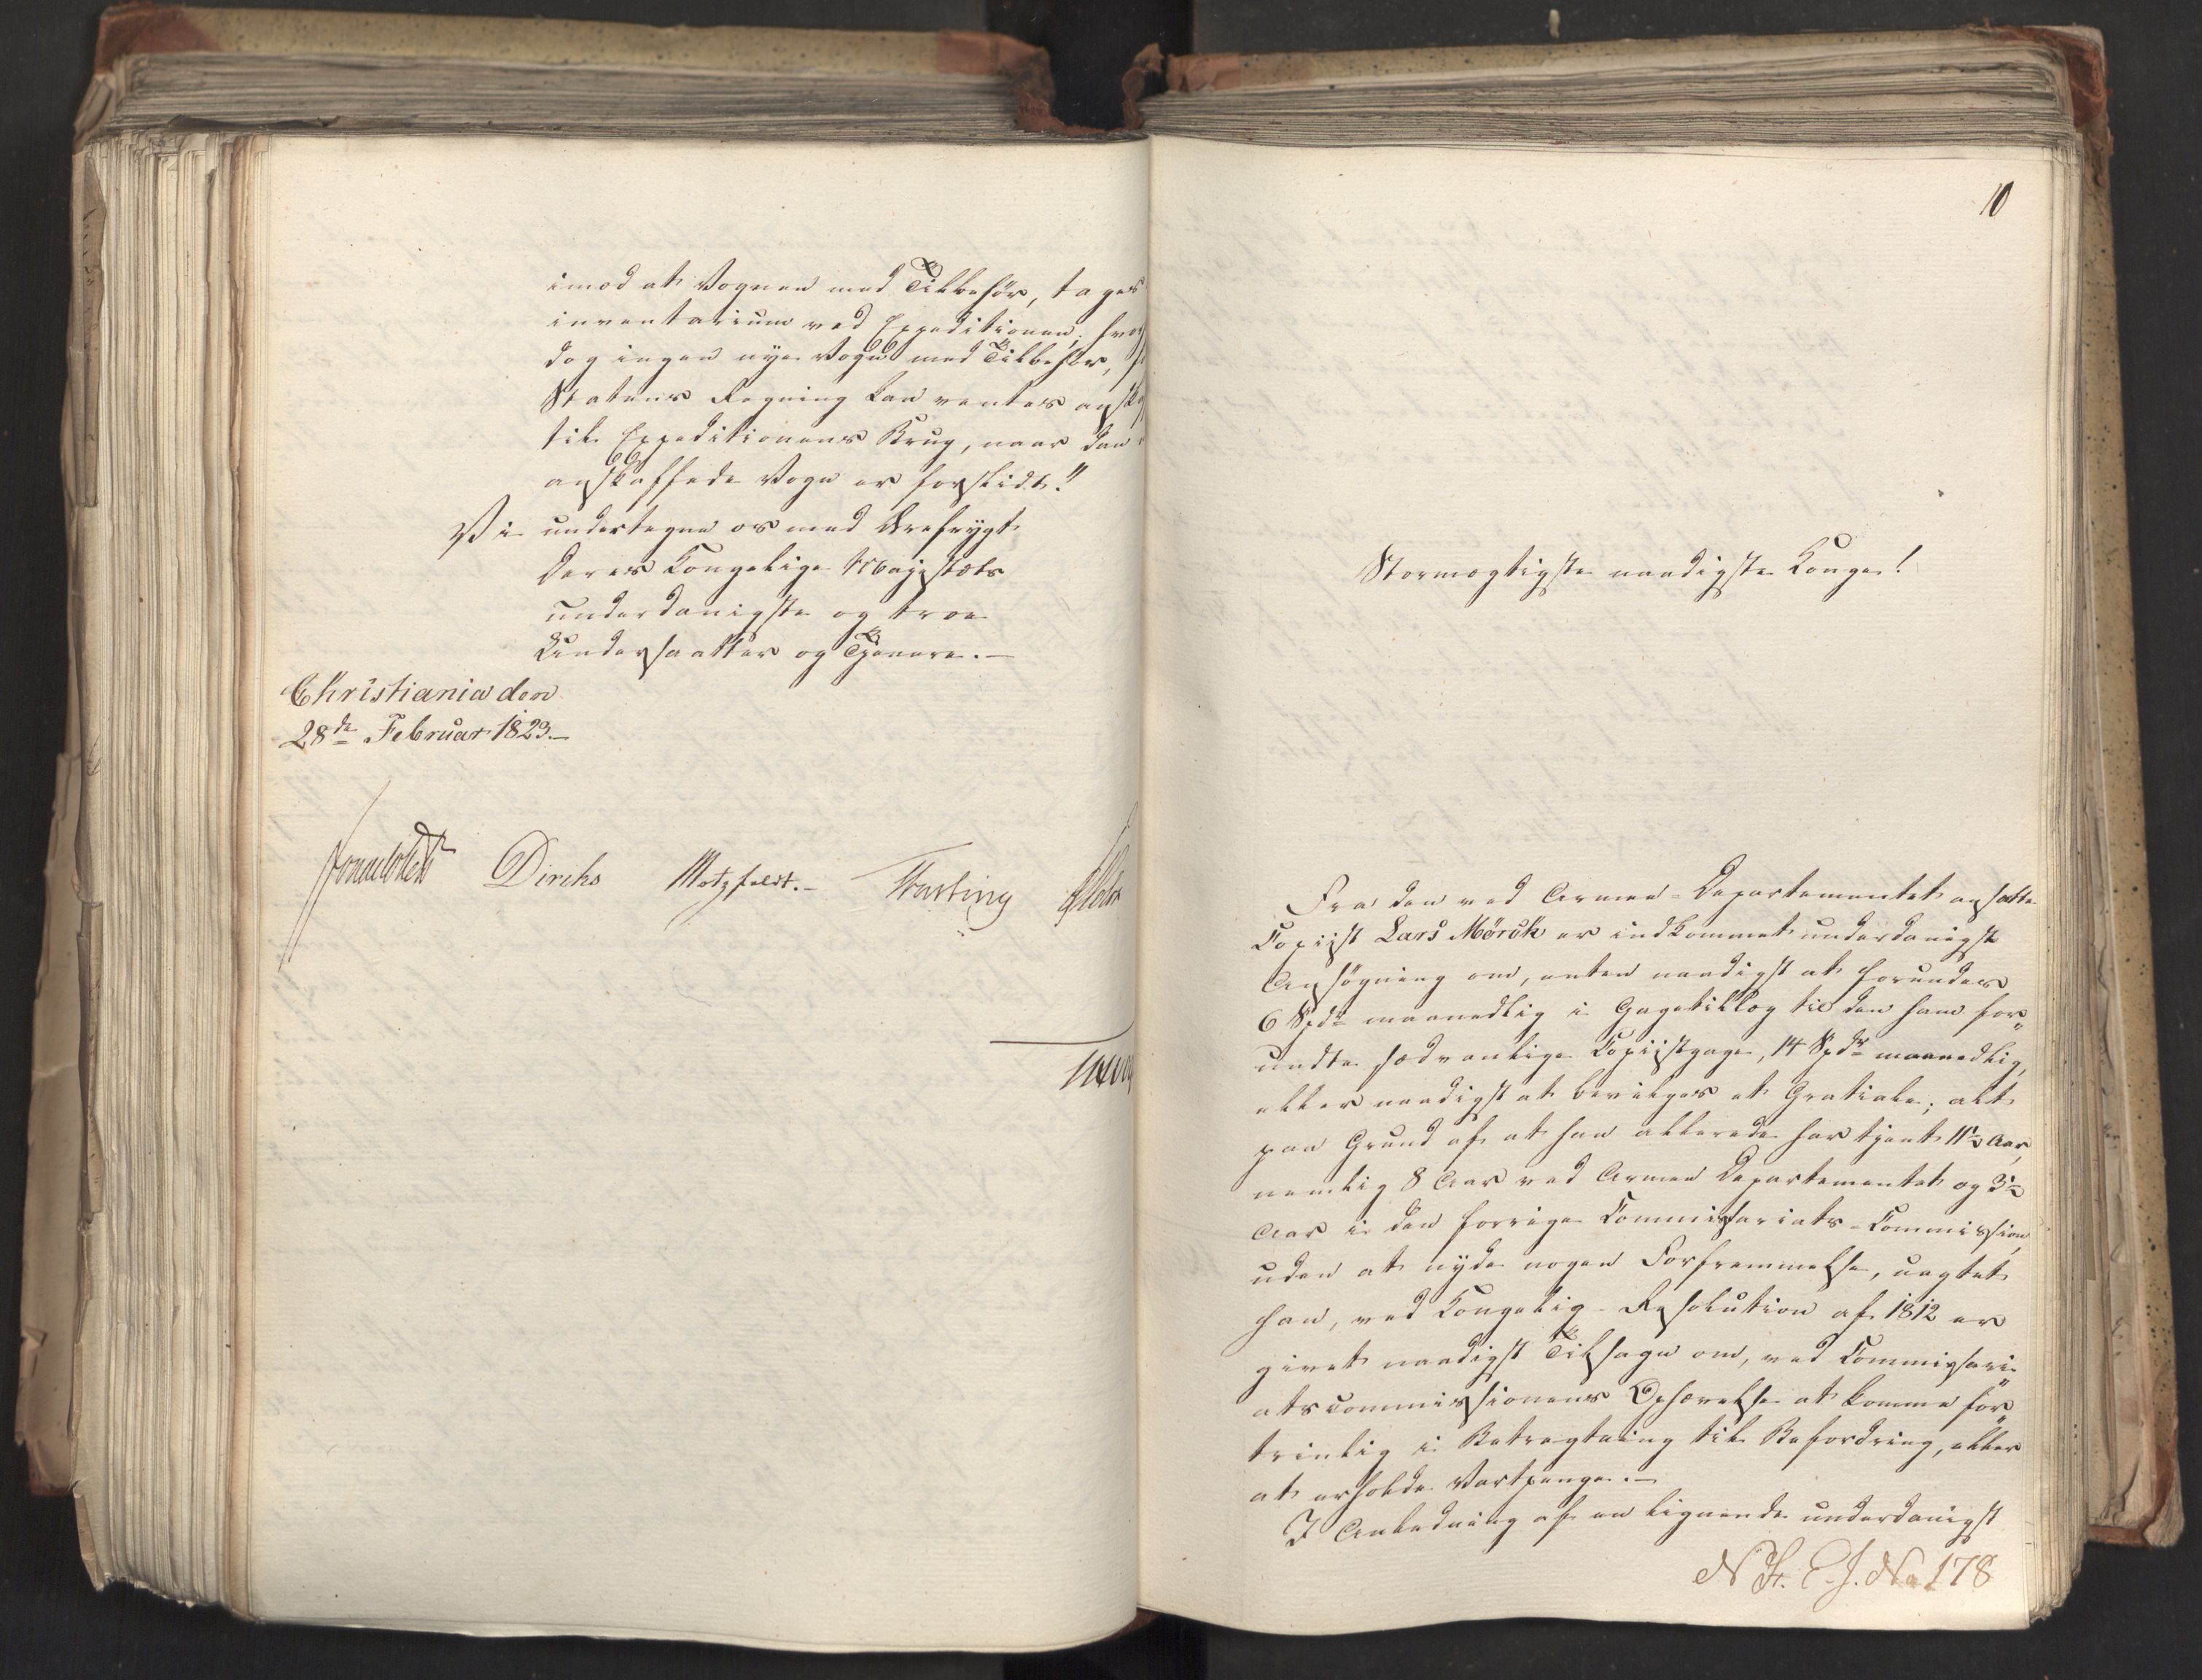 imod at Vognen med Tilbehör, tages
inventarium ved Expeditionen; hvor
dog ingen nye Vogn med Tilbehör, f
Statens Regning kan ventes anska
til Expeditionens Brug, naar den
anskaffede Vogn er forslidt."
Vi undertegne os med Ærefrygt
Deres Kongelige Majestæts
underdanigste og troe
Undersaatter og Tjenere.—
Christiania den
28de Februar 1823.—
Diriks Motzfeldt.— Fasting
10
Stormægtigste naadigste Konge!
Fra den ved Armee-Departementet ansatte
Copiist Lars Mörch er indkommet underdanigst
Ansögning om, enten naadigst at forundes
6 Spdr maanedlig i Gagetillæg til den ham for„
undte sædvanlige Copiistgage, 14 Spdr maanedlig,
eller naadigst at bevilges et Gratiale; alt
paa Grund af at han allerede har tjent 11½ Aar,
nemlig 8 Aar ved Armee Departementet og 3½
Aar i den forrige Commissariats-Commission,
uden at nyde nogen Forfremmelse, uagtet
han, ved Kongelig Resolution af 1812 er
givet naadigst Tilsagn om, ved Commissari„
atscommissionens Ophævelse at komme for„
trinlig i Betragtning til Befordring, eller
at erholde Vartpenge.—
I Anledning af en lignende underdanigst
N. St. E. J. No 178